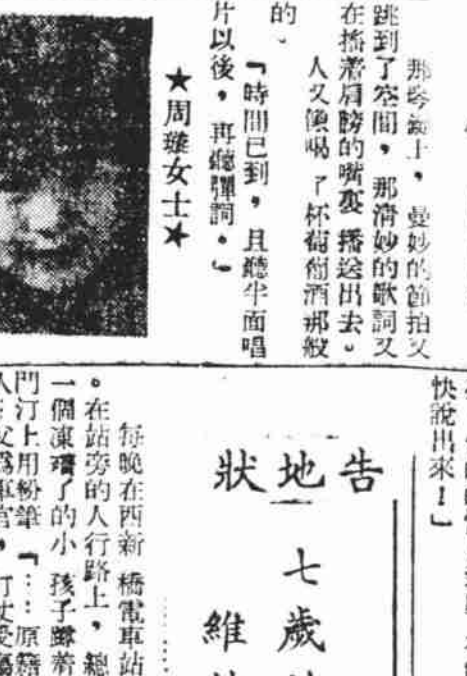 那琴鍵上，曼妙的節拍又
跳到了空間，那清妙的歌詞又
在搖着肩膀的嘴裏播送出去。
人又像喝了杯葡萄酒那般
的。
「時間已到，且聽半面唱
片以後，再聽彈詞。」
★周璇女士★
快說出來！」
告地狀
七歲
維
每晚在西新橋電車站
。在站旁的人行路上，總
一個凍了的小孩子蹲着
門汀上用粉筆「……原籍
父爲軍官，打仗受傷